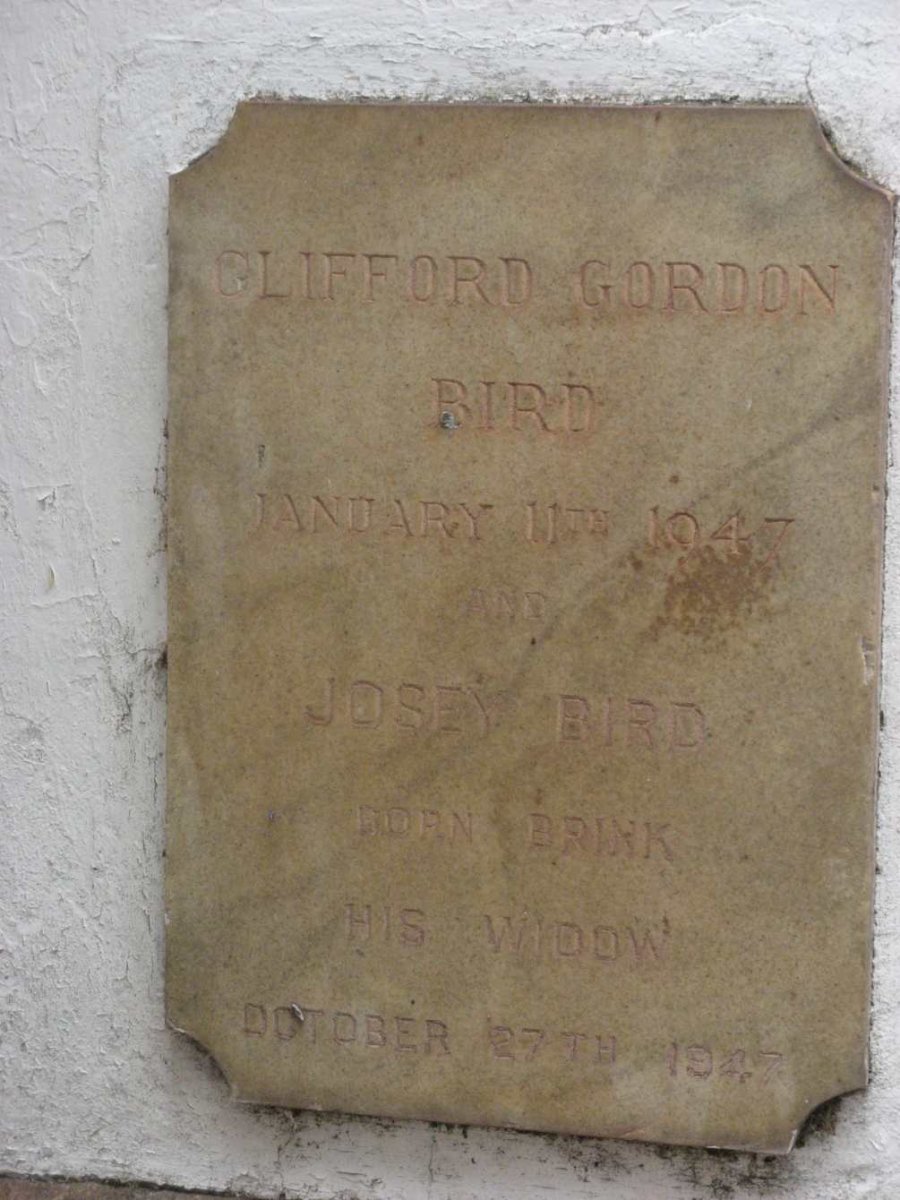 CLIFFORD GORDON
BIRD
JANUARY 11TH 1947
AND
JOSEY BIRD
BORN BRINK
HIS WIDOW
OCTOBER 27TH 1947